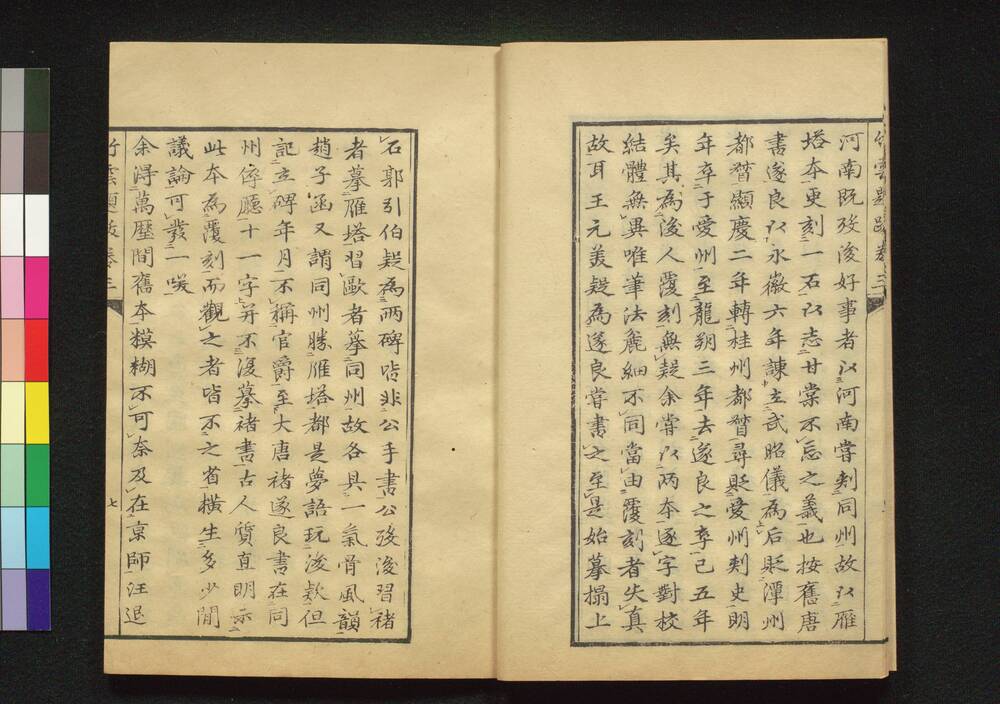 竹雲題跋卷三
河南既歿後好事者以河南嘗刺同州故以雁
塔本更刻一石以志甘棠不忘之義也按舊唐
書遂良以永徽六年諫立武昭儀為后貶潭州
都督顯慶二年轉桂州都督尋貶愛州刺史明
年卒于愛州至龍朔三年去遂良之卒已五年
矣其為後人覆刻無疑余嘗以兩本逐字對校
結體無異唯筆法麄細不同當由覆刻者失真
故耳王元美疑為遂良嘗書之至是始摹搨上
石郭引伯疑為兩碑皆非公手書公歿後習褚
者摹雁塔習歐者摹同州故各具一氣骨風韻
趙子函又謂同州勝雁塔都是夢語玩後欵但
記立碑年月不稱官爵至大唐褚遂良書在同
州倅廳十一字并不復摹褚書古人質直明示
此本為覆刻而觀之者皆不之省橫生多少閒
議論可發一噱
余淂萬歷間舊本糢糊不可奈及在京師汪退
竹雲題跋卷三
七